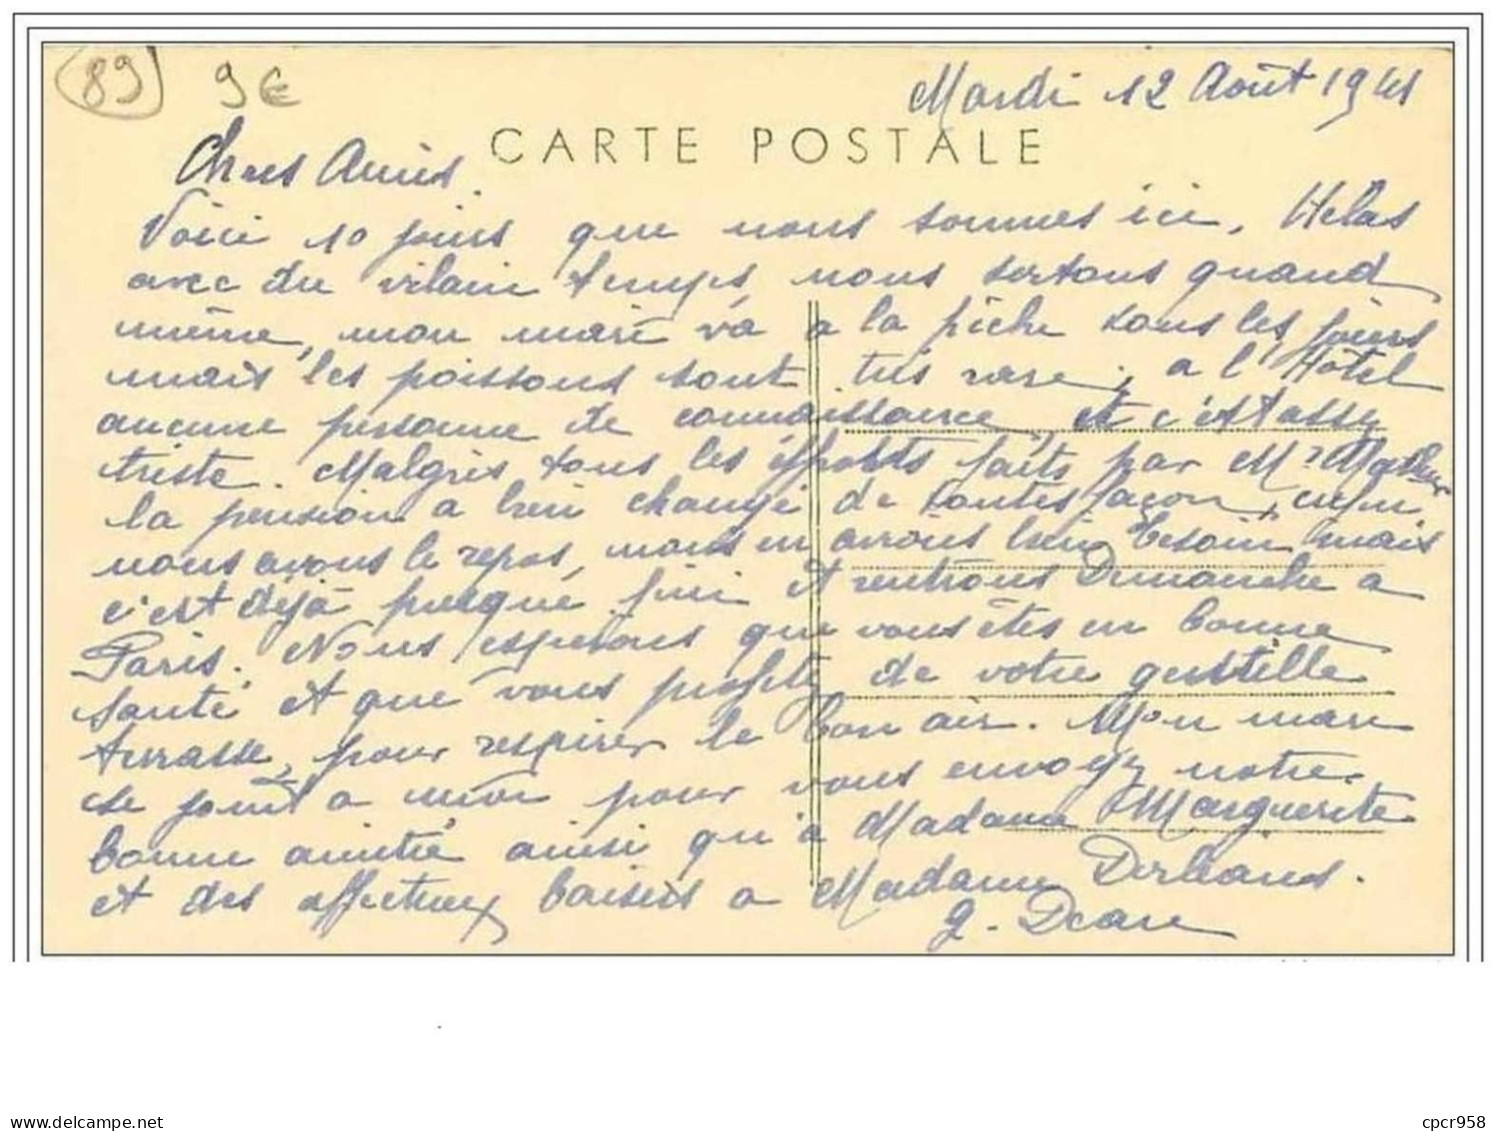 89 9€
Mardi 12 Août 1941
CARTE POSTALE
Chers Amis.
Voici 10 jours que nous sommes ici, Hélas
avec du vilain temps, nous sortons quand
même, mon mari va a la pêche tous les jours
mais les poissons sont très rare, a l'Hôtel
aucune personne de connaissance et c'est assez
triste. Malgrés tous les éfforts faits par Mr
la pension a bien changé de toutes façon, enfin
nous avons le repos, nous en avions bien besoin mais
c'est déjà presque fini et rentrons Dimanche a
Paris. Nous esperons que vous êtes en bonne
santé et que vous profité de votre gentille
terrasse, pour respirer le bon air. Mon mari
se joint a moi pour vous envoyez notre
bonne amitié ainsi qu'a Madame Marguerite
et des affectueux baisers a Madame